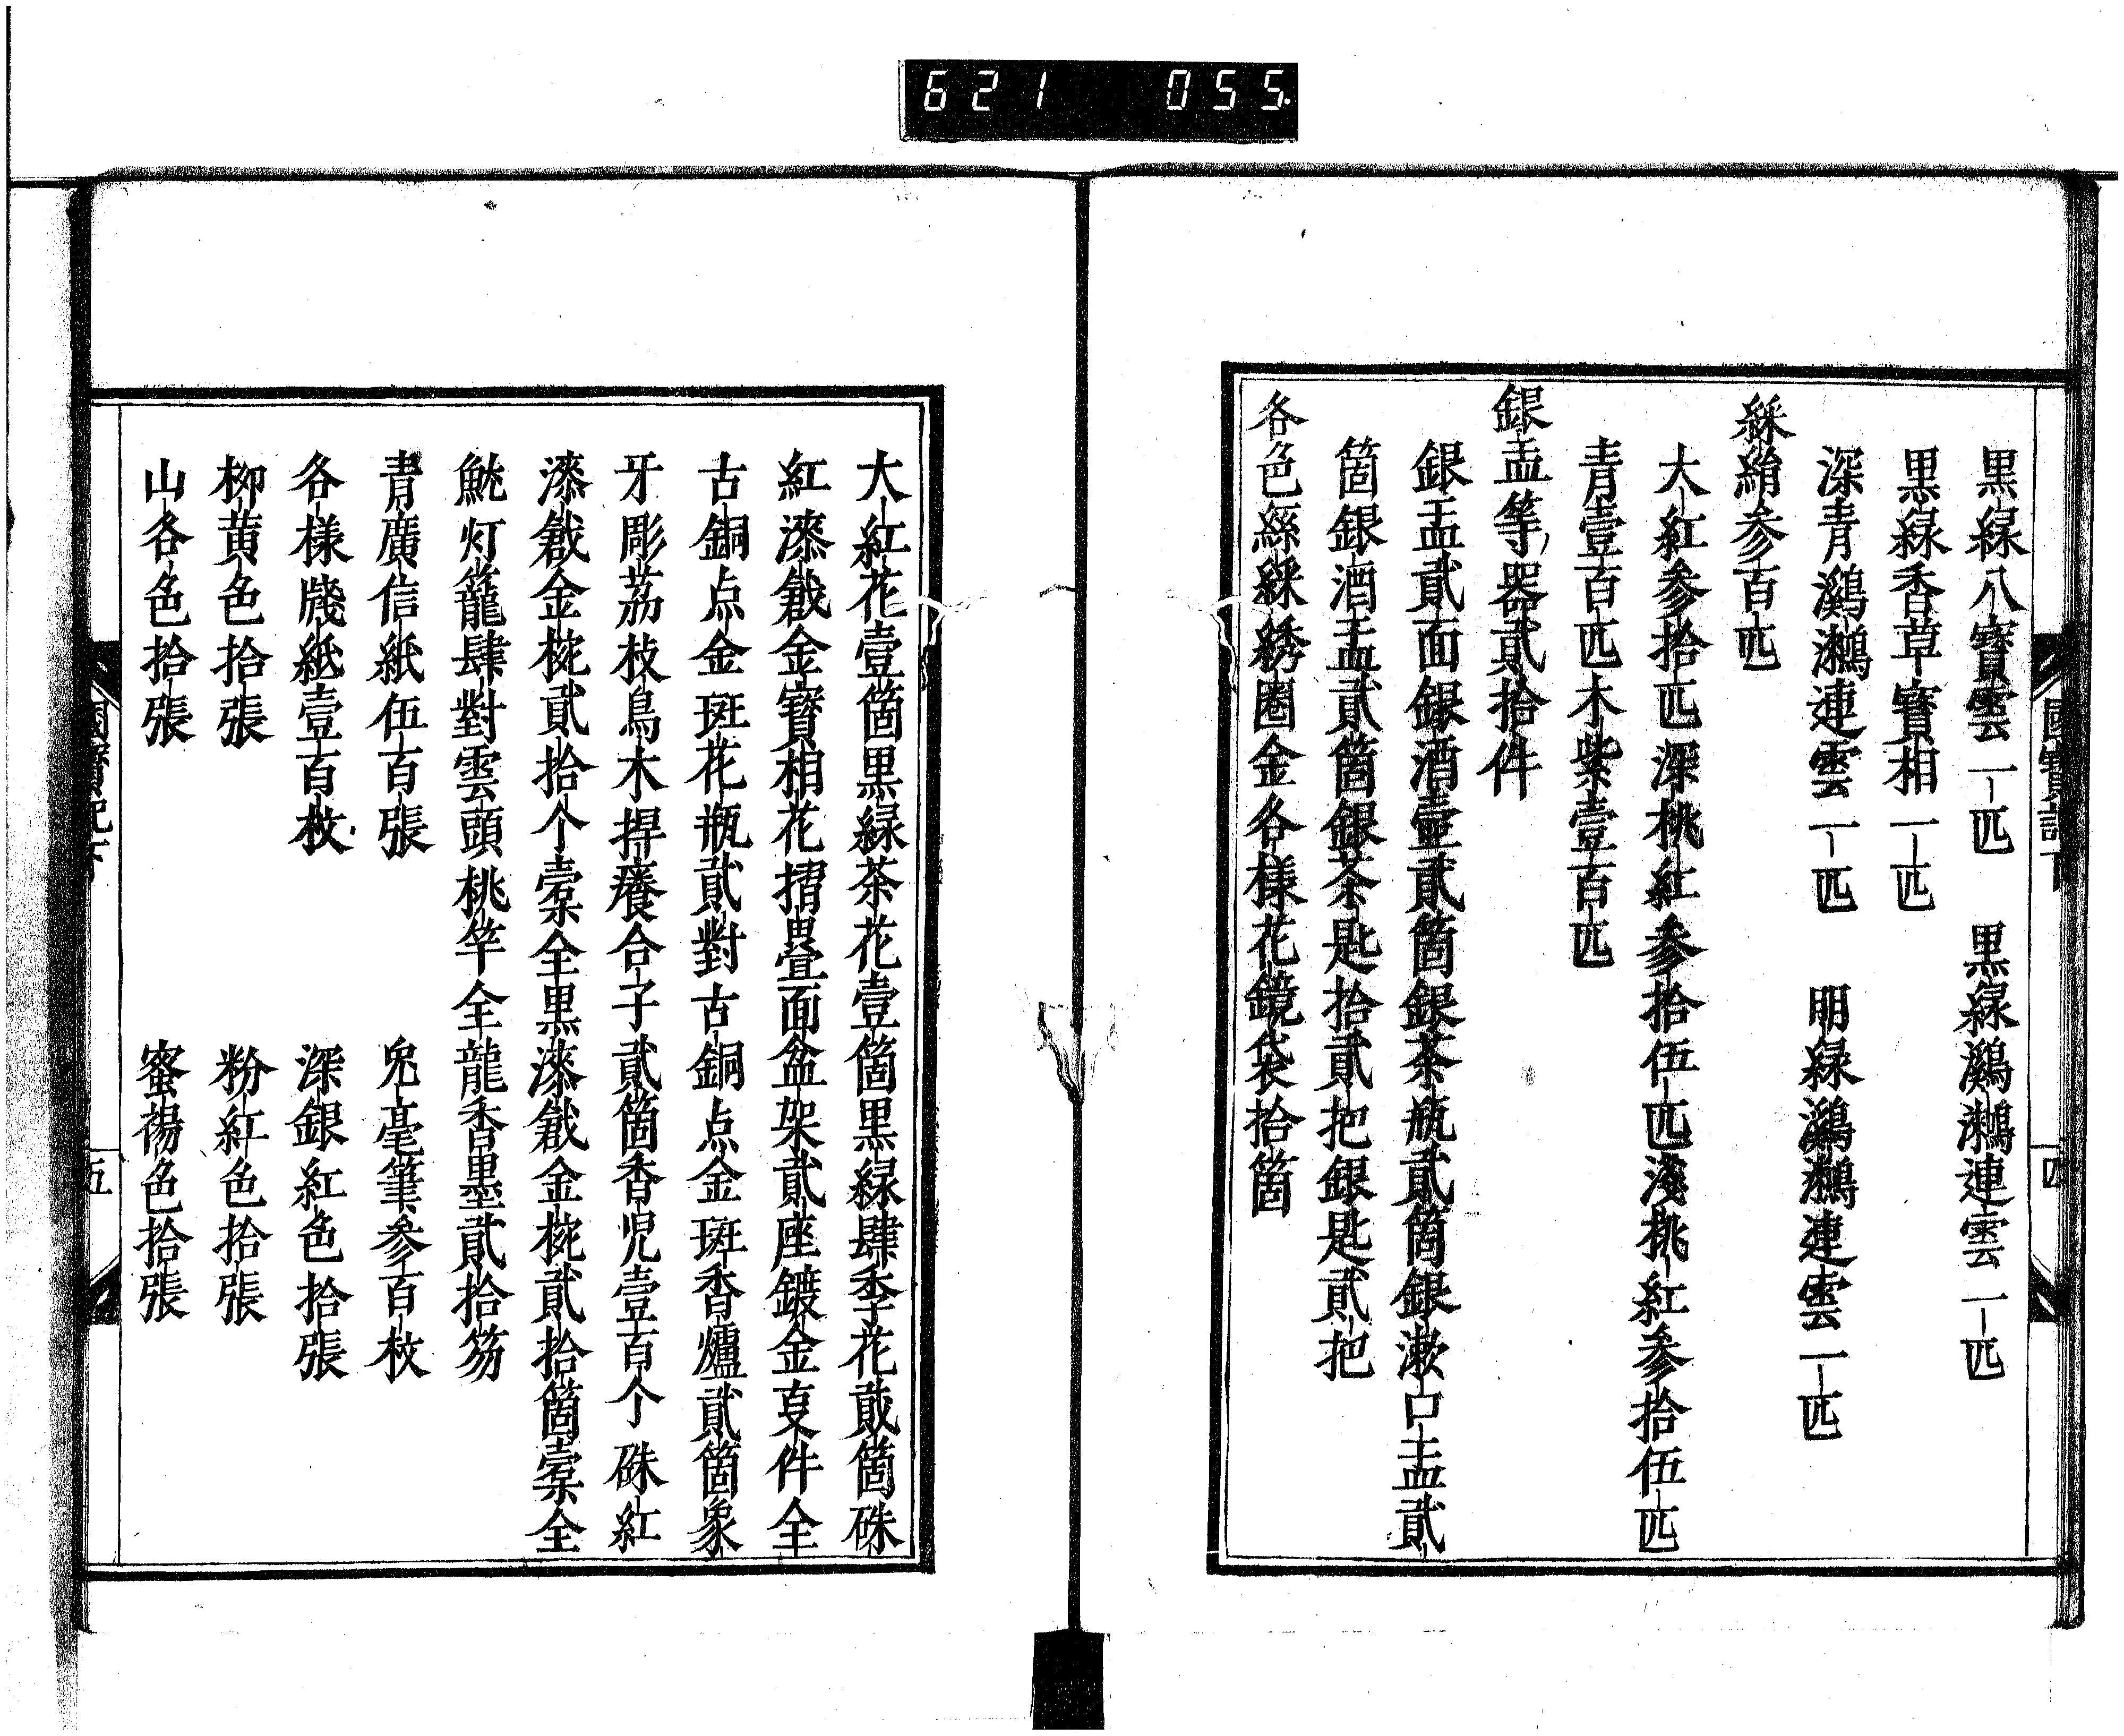 621 055
黒緑八寳雲一匹 黒緑鸂鶒連雲一匹
黒緑香草寳相一匹
深青鸂鶒連雲一匹 明緑鸂鶒連雲一匹
綵絹参百匹
大紅参拾匹深桃紅参拾伍匹淺桃紅参拾伍匹
青壹百匹木紫壹百匹
銀盂等器貳拾件
銀盂貳面銀酒壷貳箇銀茶瓶貳箇銀漱口盂貳
箇銀酒盂貳箇銀茶匙拾貳把銀匙貳把
各色絲綵綉圏金各様花鏡袋拾箇
大紅花壹箇黒緑茶花壹箇黒緑肆季花貳箇硃
紅漆戧金寳相花摺疊面盆架貳座鍍金事件全
古銅点金斑花瓶貳對古銅点金斑香爐貳箇象
牙彫荔枝烏木捍癢合子貳箇香児壹百个硃紅
漆戧金椀貳拾个槖全黒漆戧金椀貳拾箇槖全
魫灯籠肆對雲頭桃竿全龍香墨貳拾笏
青廣信紙伍百張 兎毫筆参百枝
各様牋紙壹百枚 深銀紅色拾張
柳黄色拾張 粉紅色拾張
山各色拾張 蜜褐色拾張
國寳記下 四
五